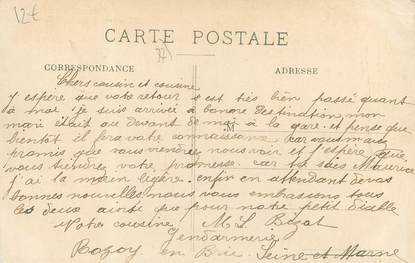 12€
CARTE POSTALE
CORRESPONDANCE
ADRESSE
M
Chers cousin et cousine
j'y espère que votre retour s'est très bien passé quant
à moi je suis arrivée à bonne destination mon
mari était au devant de moi à la gare et pense que
bientôt il fera votre connaissance car vous m'avez
promis que vous viendrez nous voir et j'espère que
vous tiendrez votre promesse car
j'ai la main légère. enfin en attendant de vos
bonnes nouvelles nous vous embrassons tous
les deux ainsi que pour notre petit diable
Votre cousine M L Bizot
Gendarmerie
Rozoy en Brie Seine et Marne